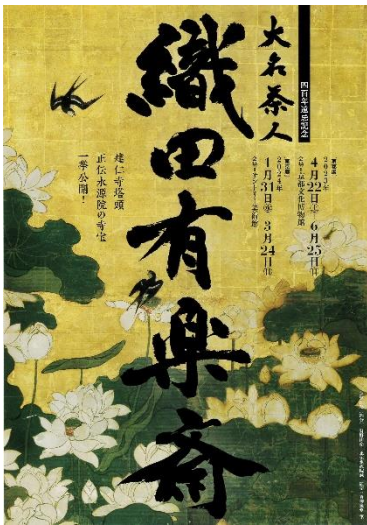 四百年遠忌記念
大名茶人
織田有楽斎
2023年
4月22日㊏
6月25日㊐
会場:京都文化博物館
1月31日㊌
3月24日㊐
会場:サントリー美術館
建仁寺塔頭
正伝永源院の寺宝
一挙公開!